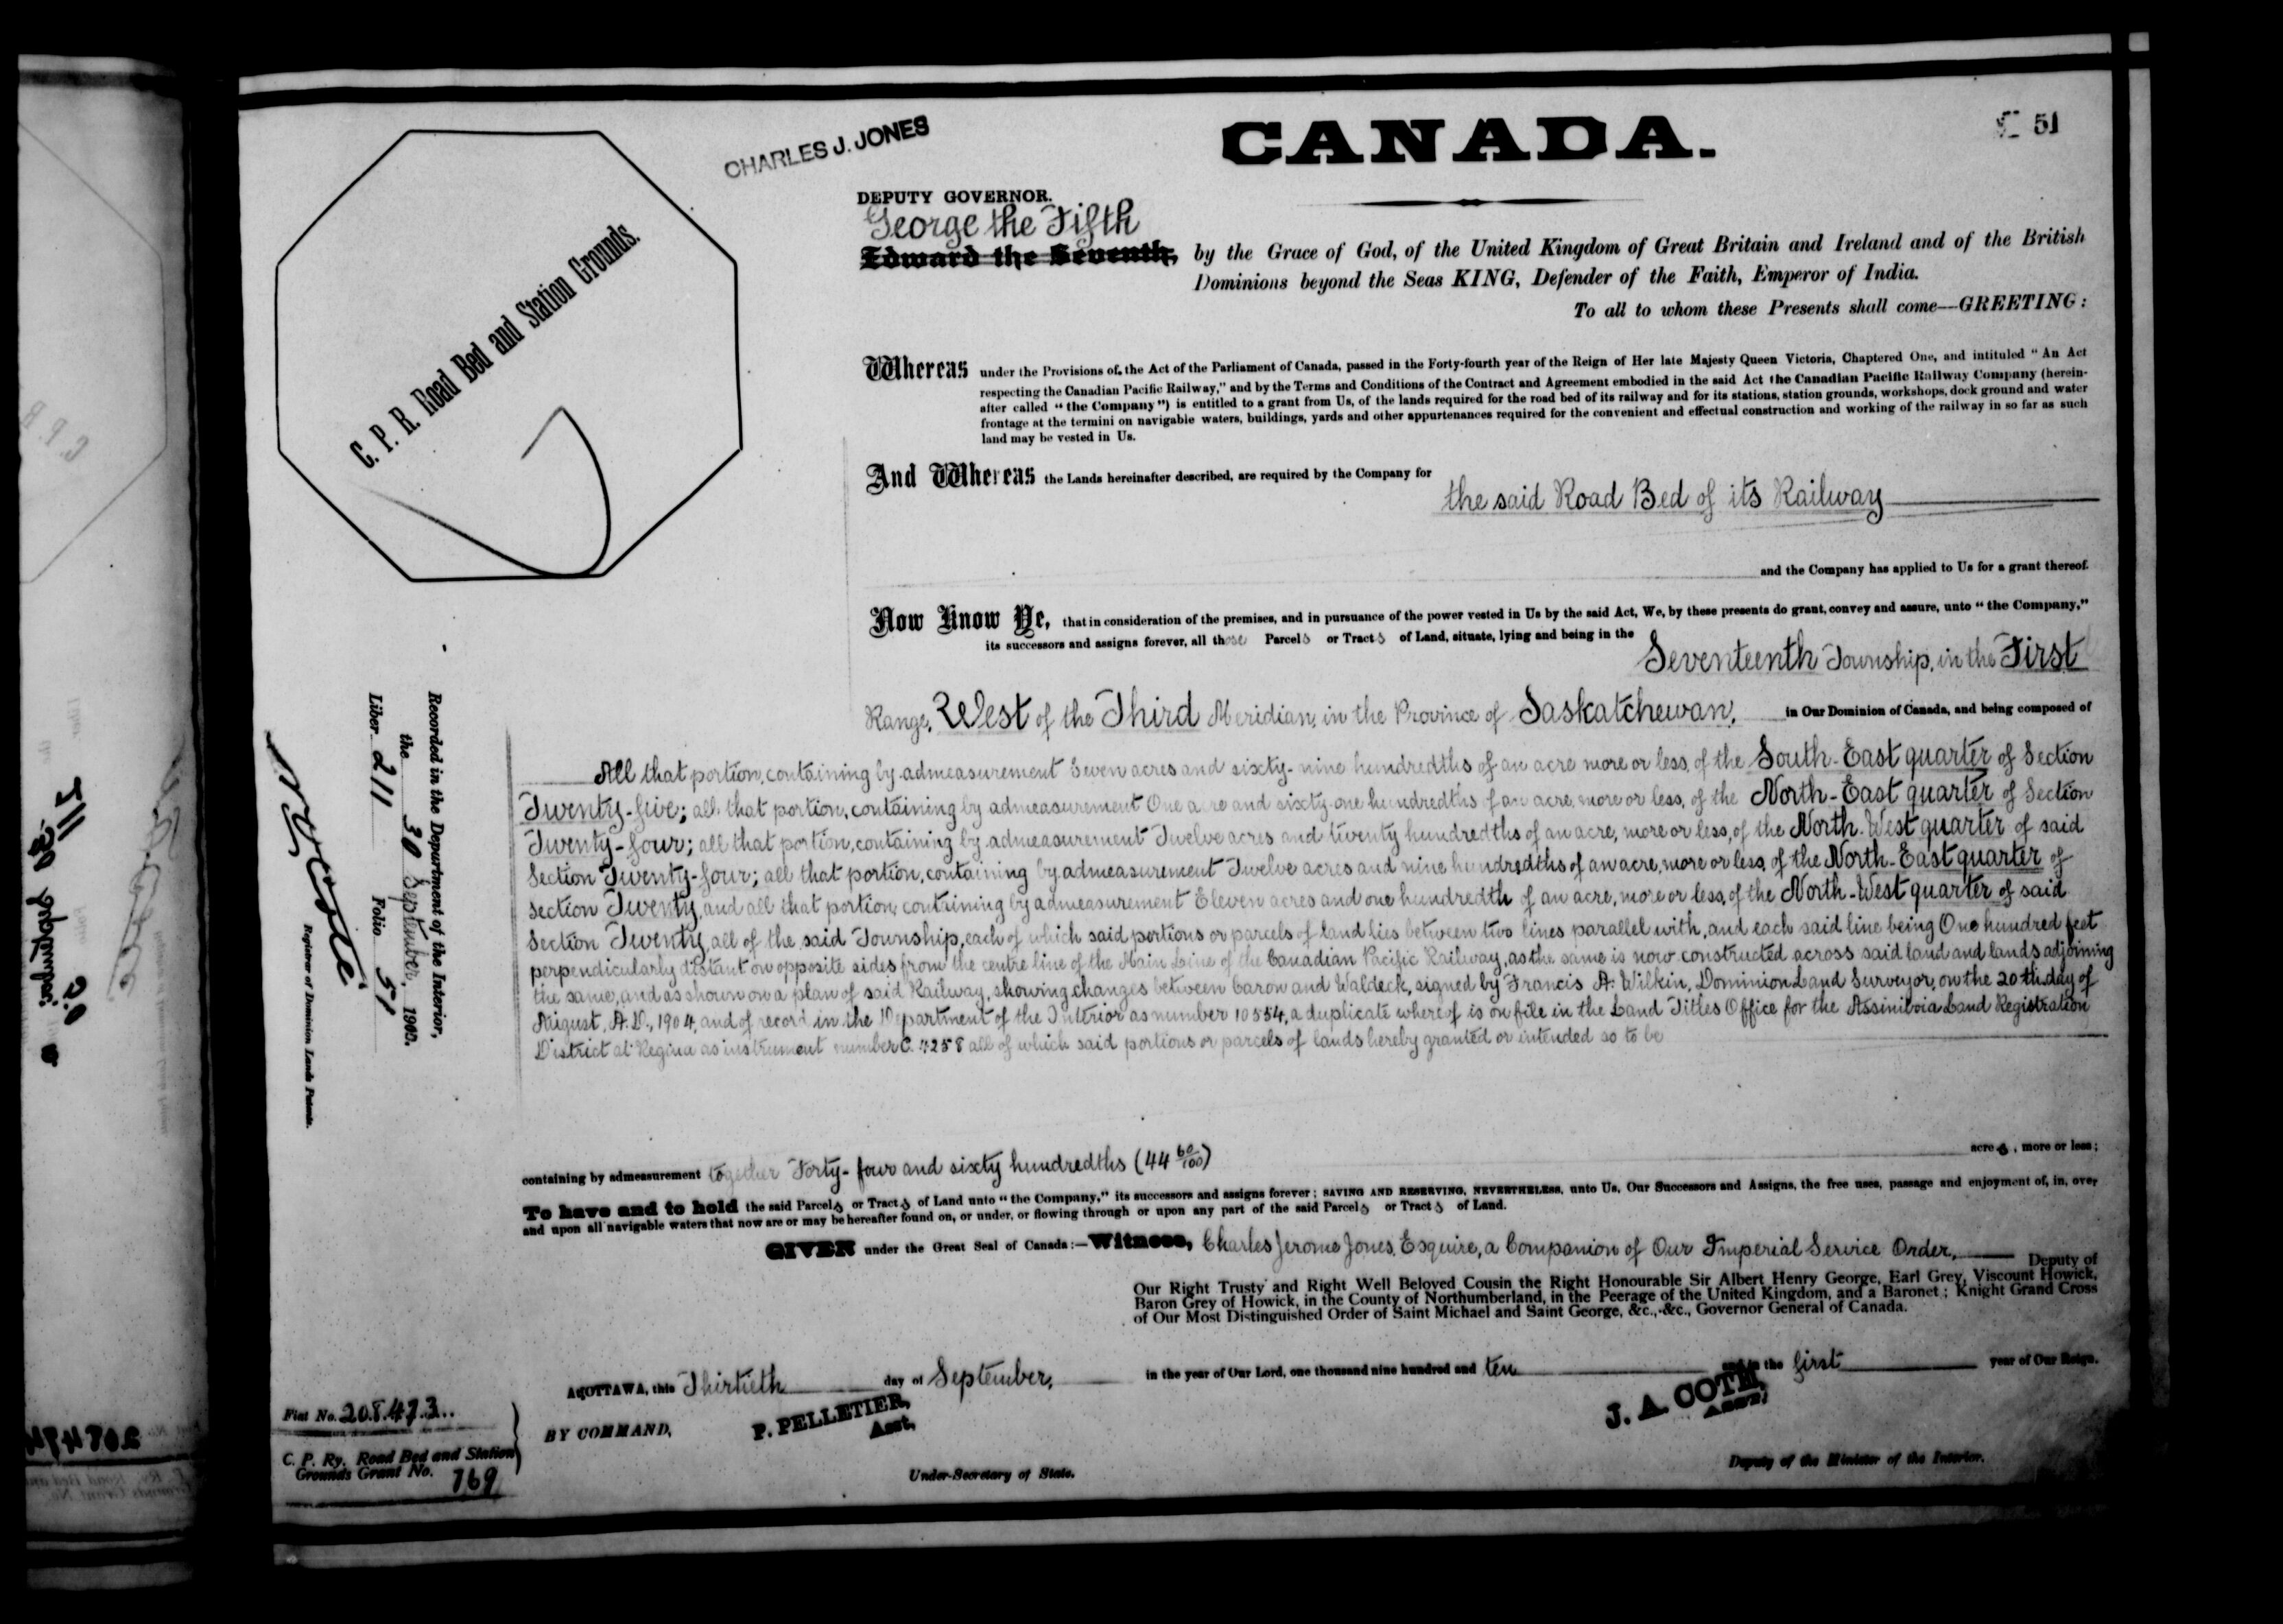 CANADA.
51
CHARLES J. JONES
DEPUTY GOVERNOR.
George the Fifth
Edward the Seventh, by the Grace of God, of the United Kingdom of Great Britain and Ireland and of the British
Dominions beyond the Seas KING, Defender of the Faith, Emperor of India.
To all to whom these Presents shall come—GREETING:
C. P. R. Road Bed and Station Grounds.
Whereas under the Provisions of the Act of the Parliament of Canada, passed in the Forty-fourth year of the Reign of Her late Majesty Queen Victoria, Chaptered One, and intituled "An Act
respecting the Canadian Pacific Railway," and by the Terms and Conditions of the Contract and Agreement embodied in the said Act the Canadian Pacific Railway Company (herein-
after called "the Company") is entitled to a grant from Us, of the lands required for the road bed of its railway and for its stations, station grounds, workshops, dock ground and water
frontage at the termini on navigable waters, buildings, yards and other appurtenances required for the convenient and effectual construction and working of the railway in so far as such
land may be vested in Us.
And Whereas the Lands hereinafter described, are required by the Company for
the said Road Bed of its Railway
and the Company has applied to Us for a grant thereof.
Now Know Ye, that in consideration of the premises, and in pursuance of the power vested in Us by the said Act, We, by these presents do grant, convey and assure, unto "the Company,"
its successors and assigns forever, all those Parcels or Tracts of Land, situate, lying and being in the
Seventeenth Township, in the First
Range, West of the Third Meridian, in the Province of Saskatchewan, in Our Dominion of Canada, and being composed of
All that portion, containing by admeasurement Seven acres and sixty-nine hundredths of an acre more or less, of the South-East quarter of Section
Twenty-five; all that portion, containing by admeasurement One acre and sixty one hundredths of an acre, more or less, of the North-East quarter of Section
Twenty-four; all that portion, containing by admeasurement Twelve acres and twenty hundredths of an acre, more or less, of the North-West quarter of said
Section Twenty-four; all that portion, containing by admeasurement Twelve acres and nine hundredths of an acre, more or less, of the North-East quarter of
Section Twenty, and all that portion, containing by admeasurement Eleven acres and one hundredth of an acre, more or less, of the North-West quarter of said
Section Twenty, all of the said Township, each of which said portions or parcels of land lies between two lines parallel with, and each said line being One hundred feet
perpendicularly distant on opposite sides from the centre line of the Main Line of the Canadian Pacific Railway, as the same is now constructed across said land and lands adjoining
the same, and as shown on a plan of said Railway, showing changes between Caron and Waldeck, signed by Francis A. Wilkin, Dominion Land Surveyor, on the 20th day of
August, A.D., 1904, and of record in the Department of the Interior as number 10554, a duplicate whereof is on file in the Land Titles Office for the Assiniboia Land Registration
District at Regina as instrument number C. 4258 all of which said portions or parcels of lands hereby granted or intended so to be
containing by admeasurement together Forty-four and sixty hundredths (44 60/100) acres, more or less;
To have and to hold the said Parcels or Tracts of Land unto "the Company," its successors and assigns forever; SAVING AND RESERVING, NEVERTHELESS, unto Us, Our Successors and Assigns, the free uses, passage and enjoyment of, in, over
and upon all navigable waters that now are or may be hereafter found on, or under, or flowing through or upon any part of the said Parcels or Tracts of Land.
GIVEN under the Great Seal of Canada:—Witness, Charles Jerome Jones, Esquire, a Companion of Our Imperial Service Order, Deputy of
Our Right Trusty and Right Well Beloved Cousin the Right Honourable Sir Albert Henry George, Earl Grey, Viscount Howick,
Baron Grey of Howick, in the County of Northumberland, in the Peerage of the United Kingdom, and a Baronet; Knight Grand Cross
of Our Most Distinguished Order of Saint Michael and Saint George, &c., &c., Governor General of Canada.
At OTTAWA, this Thirtieth day of September, in the year of Our Lord, one thousand nine hundred and ten and in the first year of Our Reign.
BY COMMAND,
P. PELLETIER,
Asst,
Under-Secretary of State.
J. A. COTÉ,
ASST,
Deputy of the Minister of the Interior.
Recorded in the Department of the Interior,
the 30 September, 190
Liber 211 Folio 51
N. O. Coté
Registrar of Dominion Lands Patents.
Fiat No. 208473
C. P. Ry. Road Bed and Station
Grounds Grant No. 769